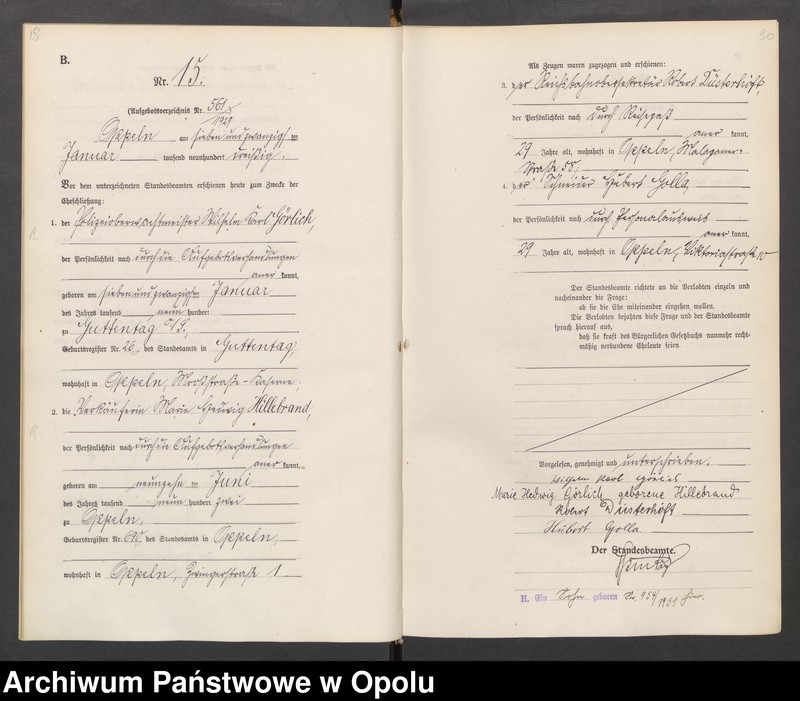 18
B.
Nr. 15.
(Aufgebotsverzeichnis Nr. 561
1929
Oppeln am siebenundzwanzigsten
Januar tausend neunhundert dreißig.
Vor dem unterzeichneten Standesbeamten erschienen heute zum Zwecke der
Eheschließung:
1. der Polizeioberwachtmeister Wilhelm Karl Görlich,
der Persönlichkeit nach durch die Aufgebotsverhandlungen
anerkannt,
geboren am siebenundzwanzigsten Januar
des Jahres tausend neun hundert
zu Guttentag O/S.,
Geburtsregister Nr. 26, des Standesamts in Guttentag,
wohnhaft in Oppeln, Kaserne,
2. die Verkäuferin Marie Hedwig Hillebrand,
der Persönlichkeit nach durch die Aufgebotsverhandlungen
anerkannt,
geboren am neunzehnten Juni
des Jahres tausend neun hundert zwei
zu Oppeln,
Geburtsregister Nr. des Standesamts in Oppeln,
wohnhaft in Oppeln, Zwingerstraße 1
30
Als Zeugen waren zugezogen und erschienen:
3. der Reichsbahnobersekretär Robert Düsterhöft,
der Persönlichkeit nach durch Reisepaß
anerkannt,
29 Jahre alt, wohnhaft in Oppeln, Malapaner-
straße
4. der Schneider Hubert Golla,
der Persönlichkeit nach durch Personalausweis
anerkannt,
29 Jahre alt, wohnhaft in Oppeln, Viktoriastraße 10
Der Standesbeamte richtete an die Verlobten einzeln und
nacheinander die Frage:
ob sie die Ehe miteinander eingehen wollen.
Die Verlobten bejahten diese Frage und der Standesbeamte
sprach hierauf aus,
daß sie kraft des Bürgerlichen Gesetzbuchs nunmehr recht-
mäßig verbundene Eheleute seien.
Vorgelesen, genehmigt und unterschrieben.
Wilhelm Karl Görlich
Marie Hedwig Görlich geborene Hillebrand
Robert Düsterhöft
Hubert Golla
Der Standesbeamte.
II. Ein Sohn geboren Nr. 954/1931 hier.
Archiwum Państwowe w Opolu